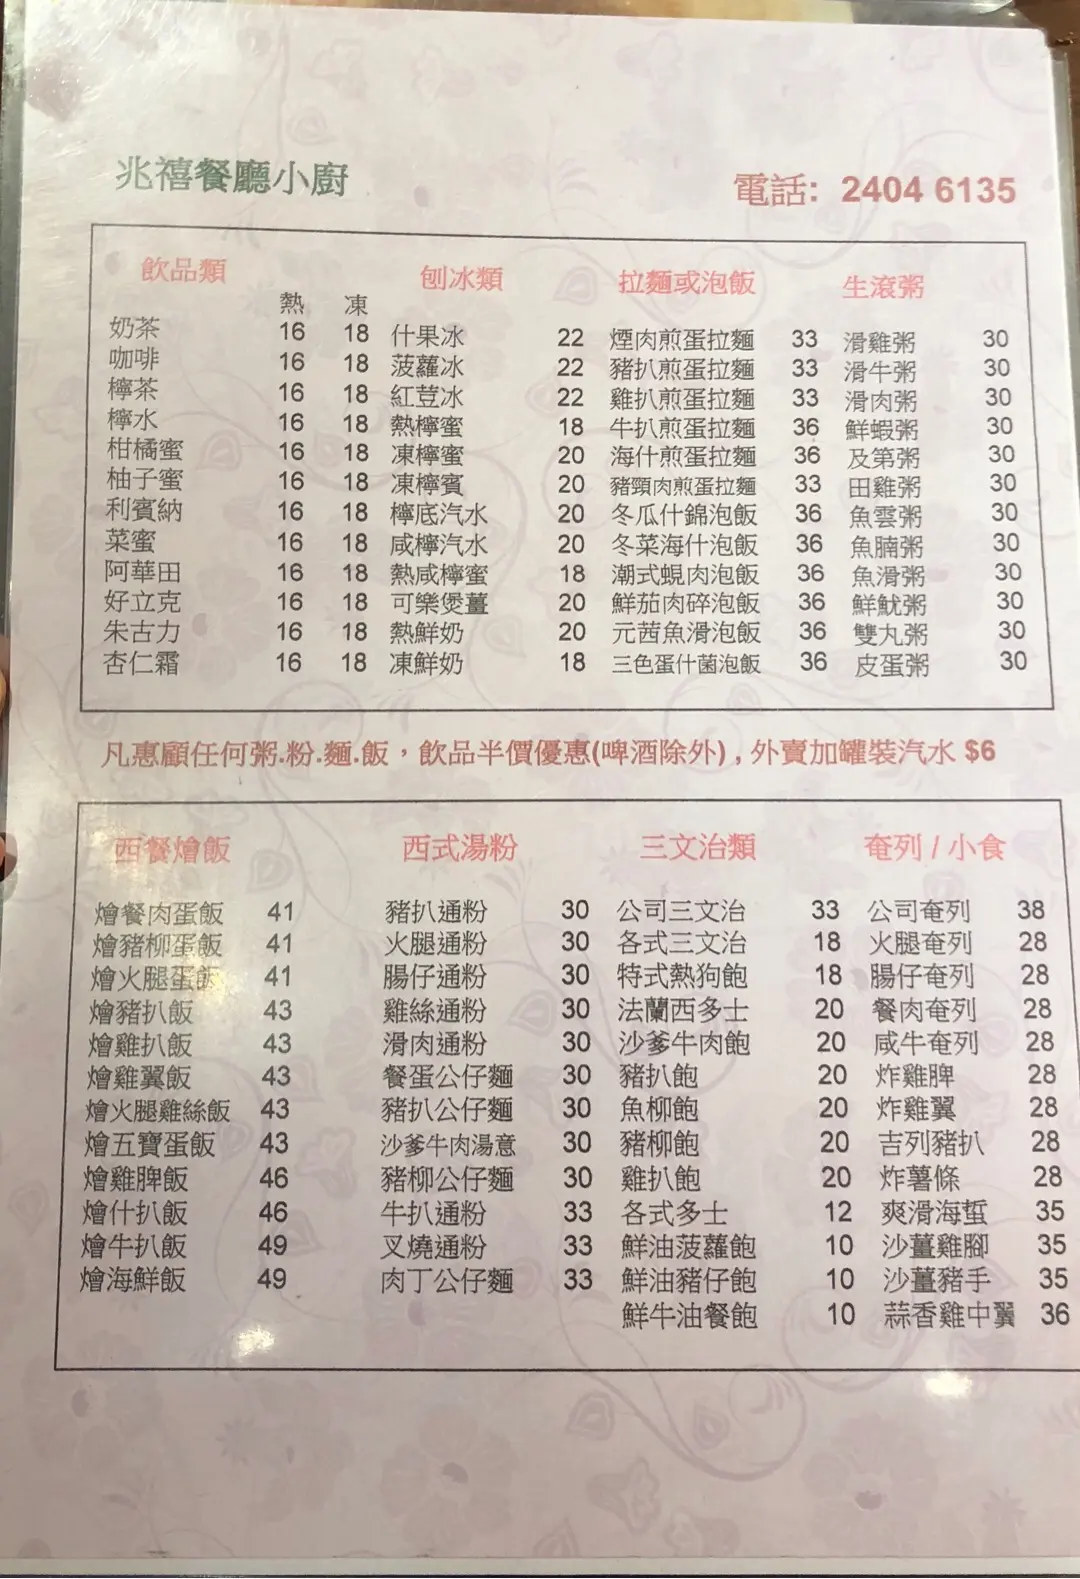 兆禧餐廳小廚
電話: 2404 6135
飲品類 刨冰類 拉麵或泡飯 生滾粥
熱 凍
奶茶 16 18 什果冰 22 煙肉煎蛋拉麵 33 滑雞粥 30
咖啡 16 18 菠蘿冰 22 豬扒煎蛋拉麵 33 滑牛粥 30
檸茶 16 18 紅荳冰 22 雞扒煎蛋拉麵 33 滑肉粥 30
檸水 16 18 熱檸蜜 18 牛扒煎蛋拉麵 36 鮮蝦粥 30
柑橘蜜 16 18 凍檸蜜 20 海什煎蛋拉麵 36 及第粥 30
柚子蜜 16 18 凍檸賓 20 豬頸肉煎蛋拉麵 33 田雞粥 30
利賓納 16 18 檸底汽水 20 冬瓜什錦泡飯 36 魚雲粥 30
菜蜜 16 18 咸檸汽水 20 冬菜海什泡飯 36 魚腩粥 30
阿華田 16 18 熱咸檸蜜 18 潮式蜆肉泡飯 36 魚滑粥 30
好立克 16 18 可樂煲薑 20 鮮茄肉碎泡飯 36 鮮魷粥 30
朱古力 16 18 熱鮮奶 20 元茜魚滑泡飯 36 雙丸粥 30
杏仁霜 16 18 凍鮮奶 18 三色蛋什菌泡飯 36 皮蛋粥 30
凡惠顧任何粥.粉.麵.飯，飲品半價優惠(啤酒除外) , 外賣加罐裝汽水 $6
西餐燴飯 西式湯粉 三文治類 奄列 / 小食
燴餐肉蛋飯 41 豬扒通粉 30 公司三文治 33 公司奄列 38
燴豬柳蛋飯 41 火腿通粉 30 各式三文治 18 火腿奄列 28
燴火腿蛋飯 41 腸仔通粉 30 特式熱狗飽 18 腸仔奄列 28
燴豬扒飯 43 雞絲通粉 30 法蘭西多士 20 餐肉奄列 28
燴雞扒飯 43 滑肉通粉 30 沙爹牛肉飽 20 咸牛奄列 28
燴雞翼飯 43 餐蛋公仔麵 30 豬扒飽 20 炸雞脾 28
燴火腿雞絲飯 43 豬扒公仔麵 30 魚柳飽 20 炸雞翼 28
燴五寶蛋飯 43 沙爹牛肉湯意 30 豬柳飽 20 吉列豬扒 28
燴雞脾飯 46 豬柳公仔麵 30 雞扒飽 20 炸薯條 28
燴什扒飯 46 牛扒通粉 33 各式多士 12 爽滑海蜇 35
燴牛扒飯 49 叉燒通粉 33 鮮油菠蘿飽 10 沙薑雞腳 35
燴海鮮飯 49 肉丁公仔麵 33 鮮油豬仔飽 10 沙薑豬手 35
鮮牛油餐飽 10 蒜香雞中翼 36